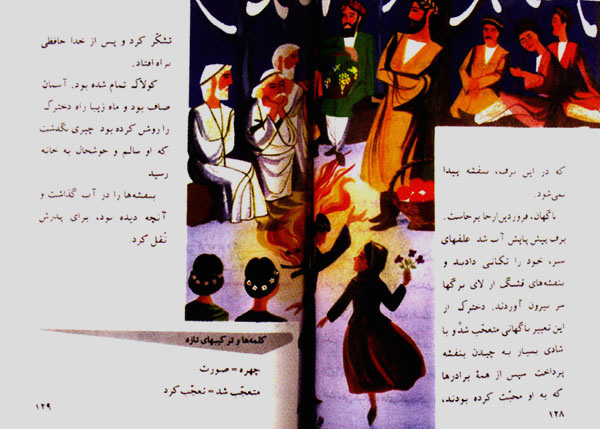 که در این برف، بنفشه پیدا
نمی‌شود.
ناگهان، فروردین ازجا برخاست.
برف پیش پایش آب شد. علفهای
سبز، خود را تکانی دادند و
بنفشه‌های قشنگ از لای برگها
سر بیرون آوردند. دخترک از
این تغییر ناگهانی متعجّب شد و با
شادی بسیار به چیدن بنفشه
پرداخت. سپس از همهٔ برادرها
که به او محبّت کرده بودند،
۱۲۸
تشکّر کرد و پس از خدا حافظی
براه افتاد.
کولاک تمام شده بود. آسمان
صاف بود و ماه زیبا راه دخترک
را روشن کرده بود. چیزی نگذشت
که او سالم و خوشحال به خانه
رسید
بنفشه‌ها را در آب گذاشت و
آنچه دیده بود، برای پدرش
نقل کرد.
کلمه‌ها و ترکیبهای تازه
چهره = صورت
متعجّب شد = تعجّب کرد
۱۲۹